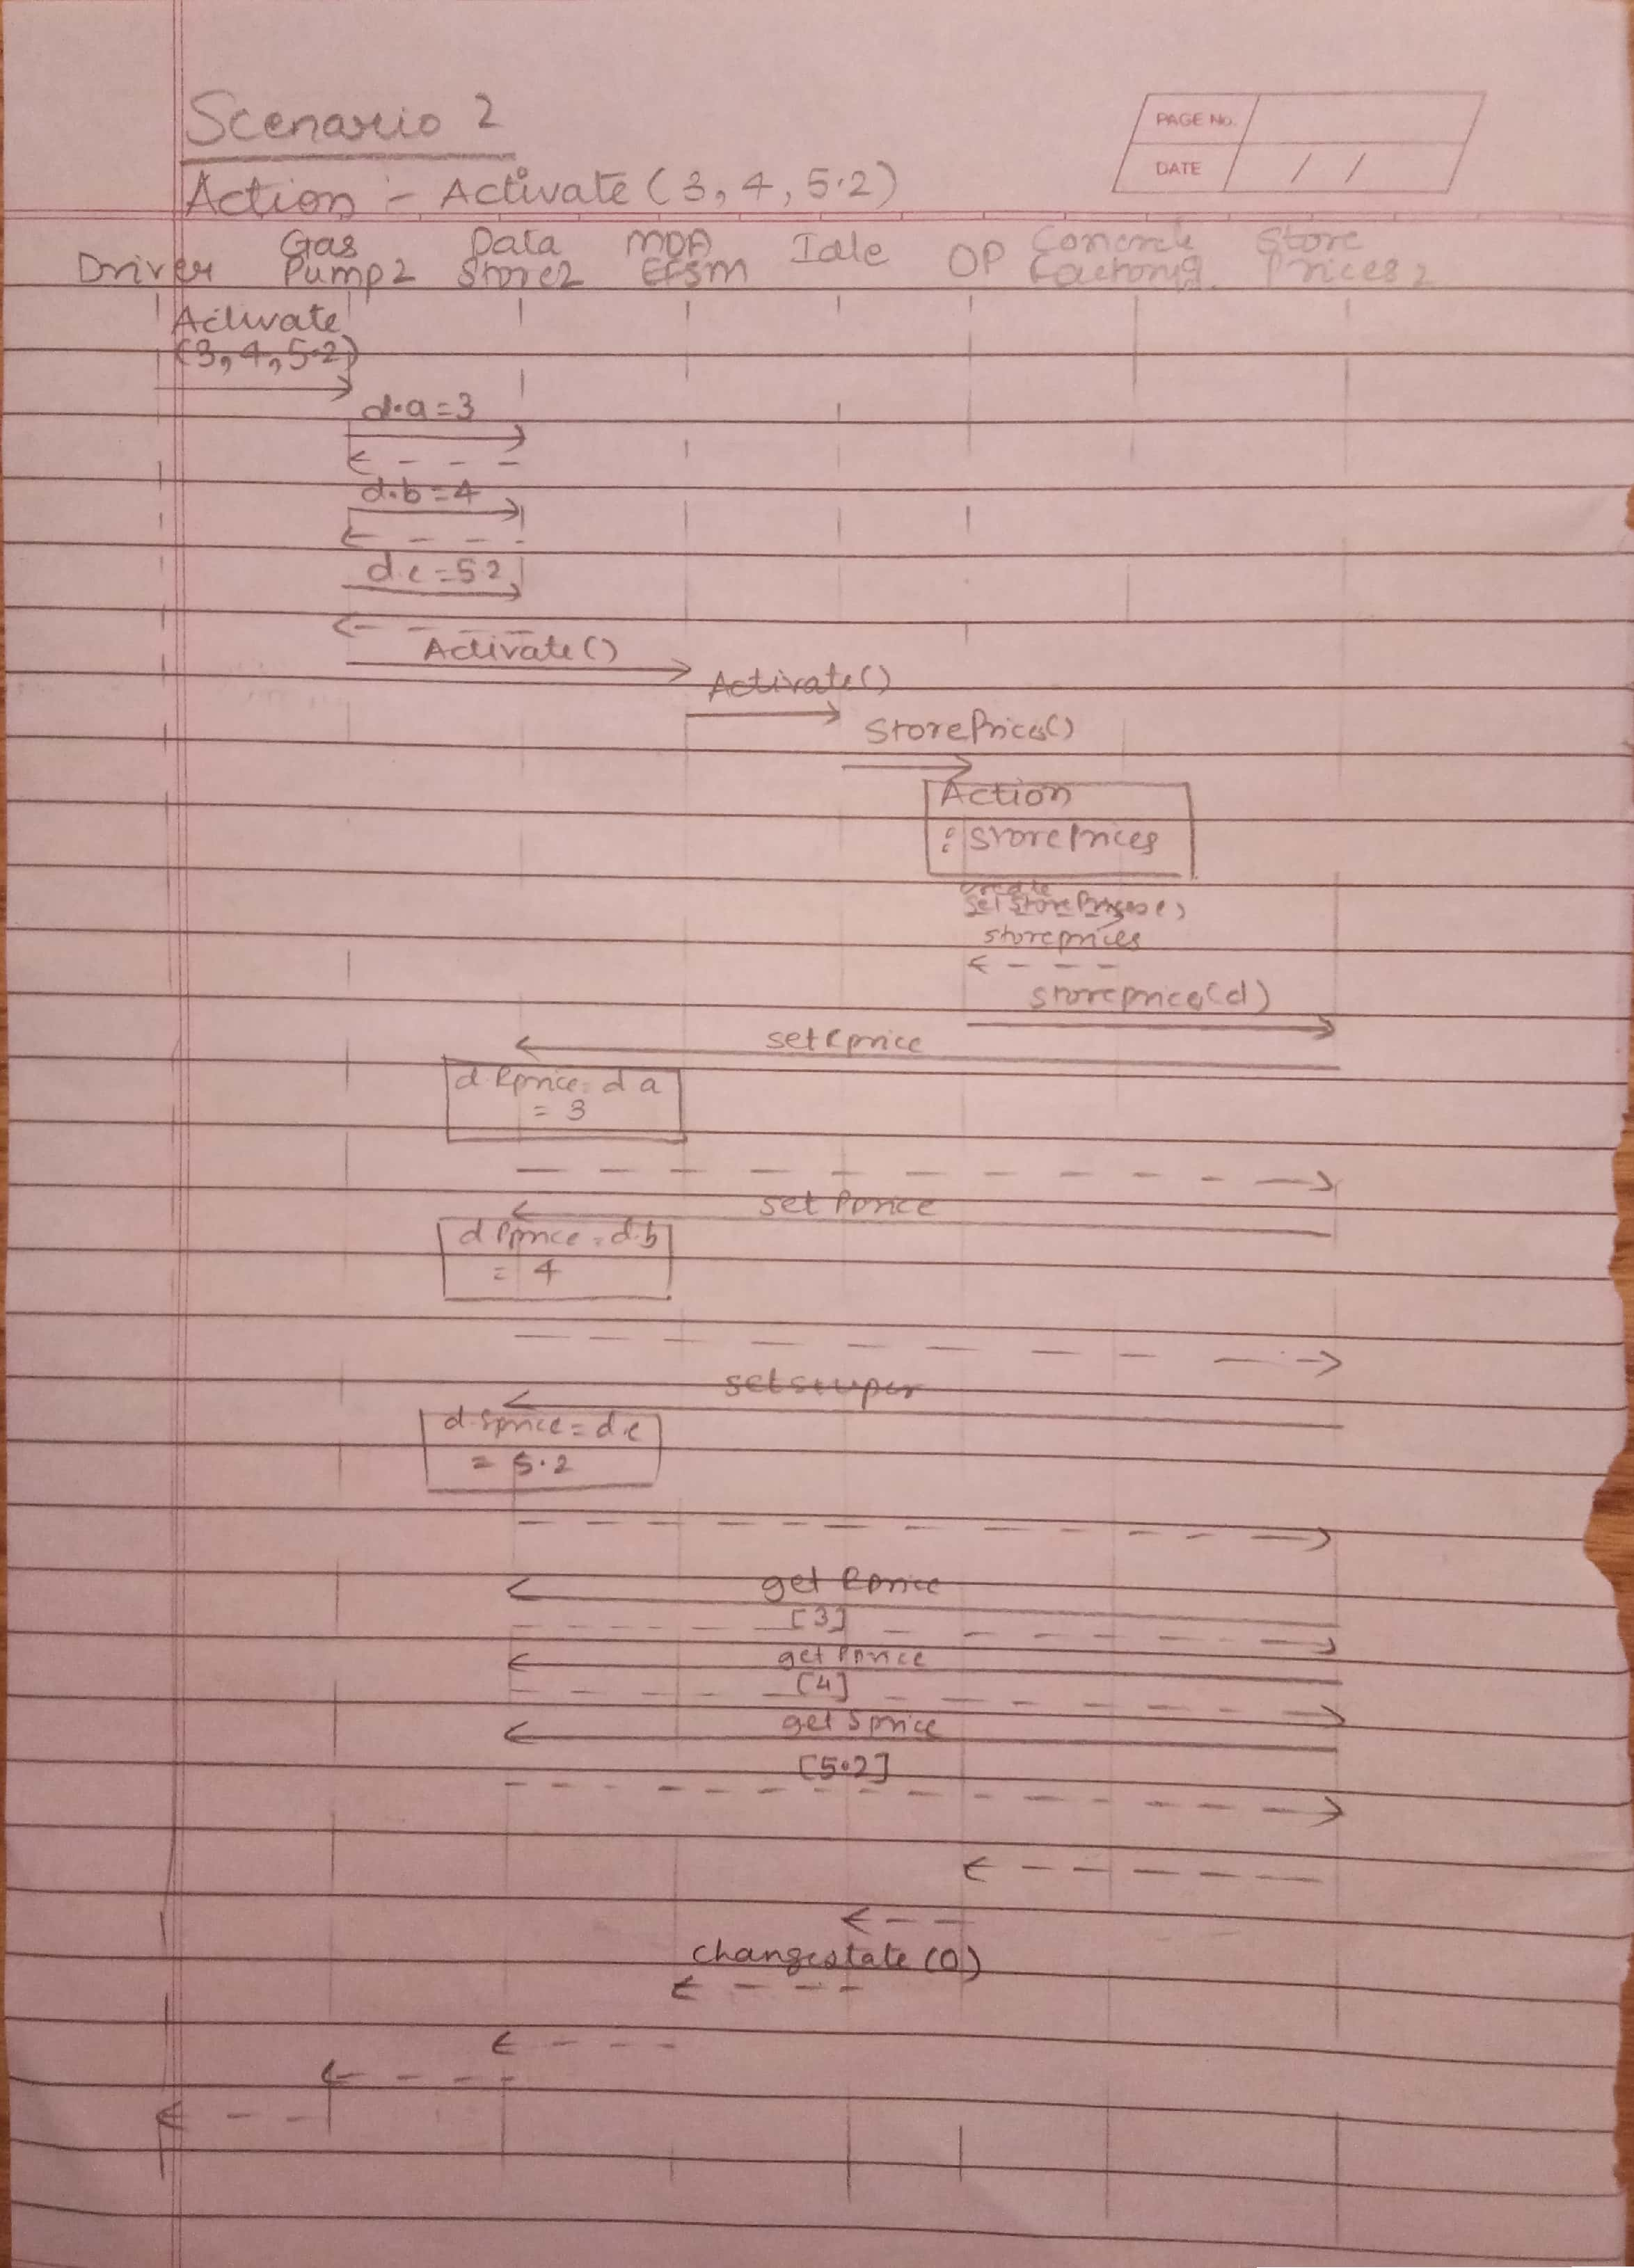 Scenario 2
PAGE No.
DATE / /
Action :- Activate (3, 4, 5.2)
Driver Gas Pump 2 Data Store2 MDA EFSM Idle OP Concrete Factory2 Store Prices 2
Activate
(3, 4, 5.2)
d.a = 3
d.b = 4
d.c = 5.2
Activate ()
Activate ()
StorePrices()
Action
: StorePrices
create
set StorePrices()
storeprices
storeprices(d)
set Rprice
d.Rprice = d.a
= 3
set Pprice
d Pprice = d.b
= 4
d.Sprice = d.c
= 5.2
get Rprice
[3]
get Pprice
[4]
get Sprice
[5.2]
changestate (0)